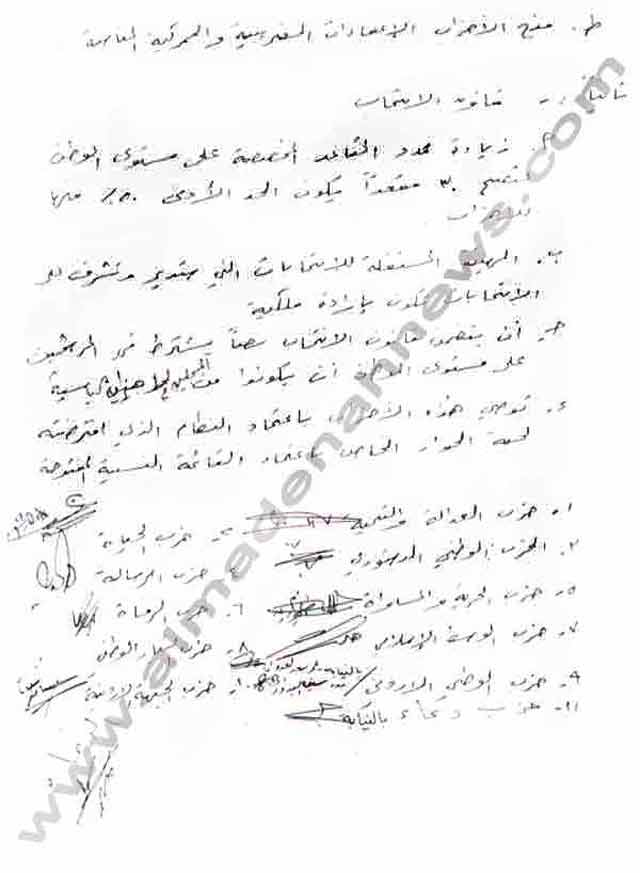 ط. منح الأحزاب الإعفاءات الضريبية والجمركية
ثالثاً :- قانون الانتخاب
أ. زيادة عدد المقاعد المخصصة على مستوى الوطن
لتصبح ٣٠ مقعداً يكون الحد الأدنى ٥٠٪ منها
للأحزاب
ب. الهيئة المستقلة للانتخابات التي ستدير وتشرف على
الانتخابات تكون بإرادة ملكية
ج. أن يتضمن قانون الانتخاب نصاً يشترط في المرشحين
على مستوى الوطن أن يكونوا من الأحزاب السياسية
د. توصي هذه الأحزاب باعتماد النظام الذي اقترحته
لجنة الحوار الخاص باعتماد القائمة النسبية المفتوحة
١. حزب العدالة والتنمية ٢. حزب الحياة
٣. الحزب الوطني الدستوري ٤. حزب الرسالة
٥. حزب الحرية والمساواة ٦. حزب الرفاة
٧. حزب الوسط الإسلامي ٨. حزب الوطن
٩. حزب الوطني الأردني ١٠. حزب الجبهة الأردنية
١١. حزب دعاء بالنيابة
www.almadenahnews.com